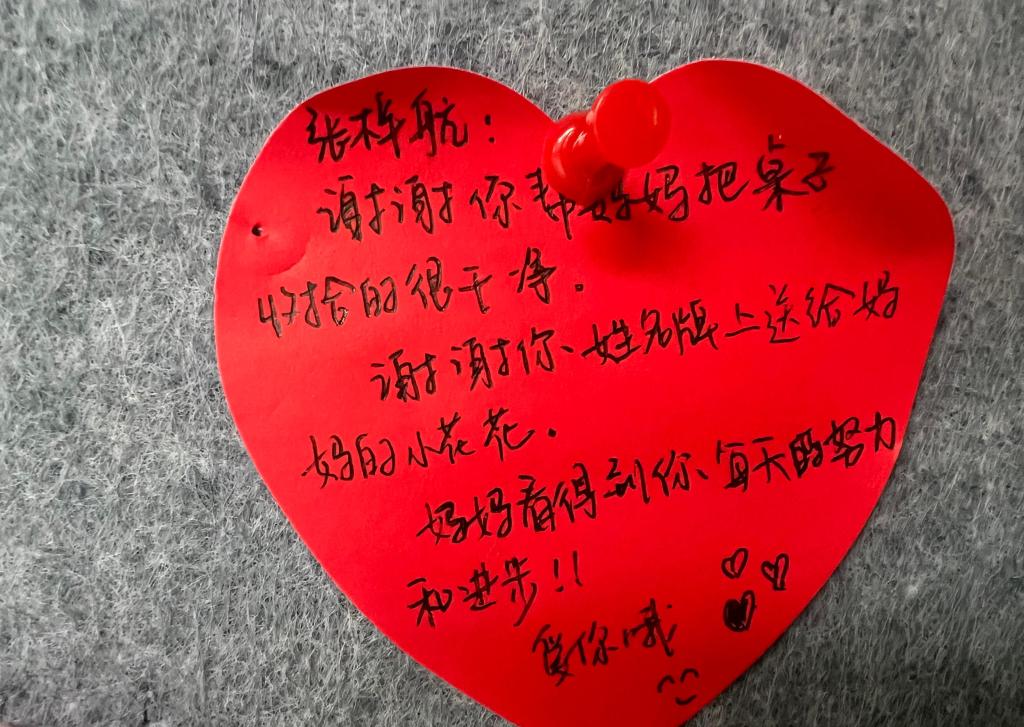 张梓航：
谢谢你帮妈妈把桌子
收拾的很干净。
谢谢你、姓名牌上送给妈
妈的小花花.
妈妈看得到你、每天的努力
和进步!!
爱你哦